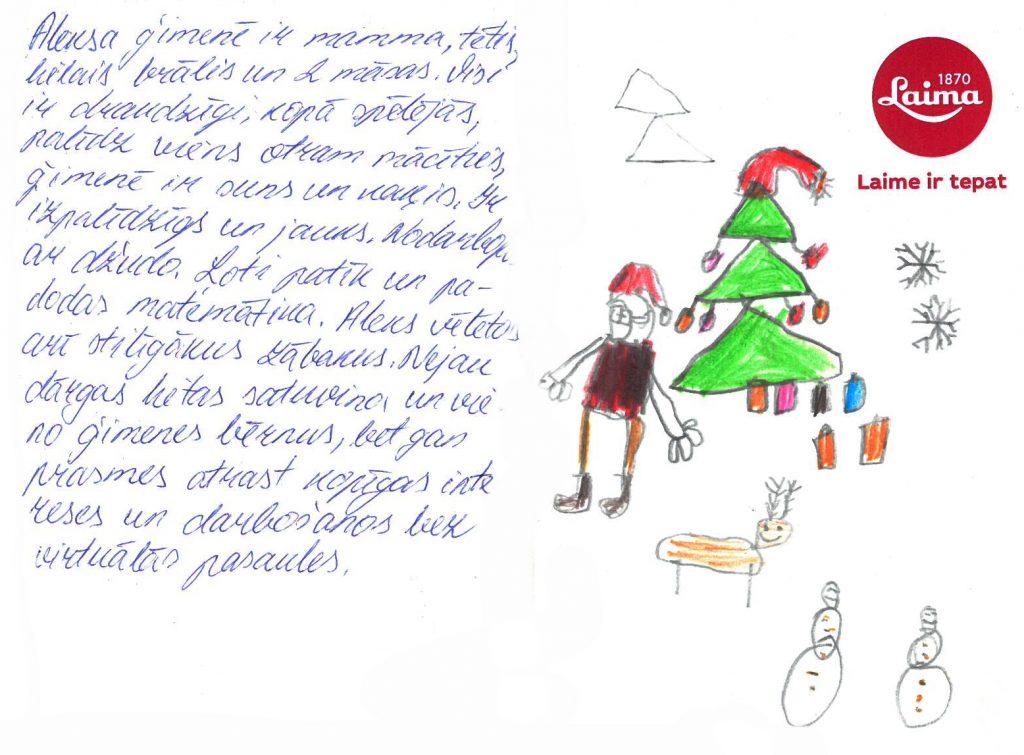 Aleksa ģimenē ir mamma, tētis,
lielais brālis un 2 māsas. Visi
ir draudzīgi, kopā spēlējās,
palīdz viens otram mācīties,
ģimenē ir suns un kaķis. Ir
izpalīdzīgs un jauks. Nodarboj.
ar džudo. Ļoti patīk un pa-
dodas matemātika. Aleks vēlētos
arī stilīgākus zābakus. Nejau
dārgas lietas satuvina un vie-
no ģimenes bērnus, bet gan
prasmes atrast kopīgas inte
reses un darbošanos bez
virtuālās pasaules.
1870
Laima
Laime ir tepat